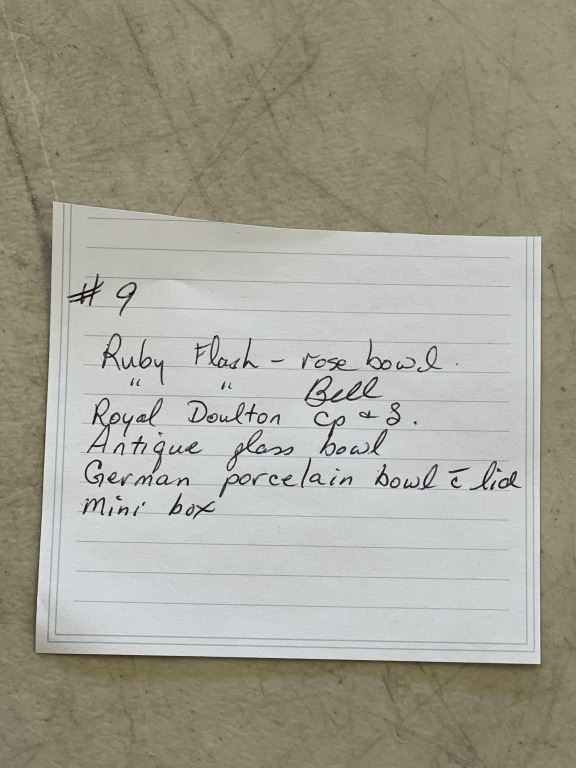 # 9
Ruby Flash - rose bowl.
" " Bell
Royal Doulton cp + S.
Antique glass bowl
German porcelain bowl c̄ lid
Mini box